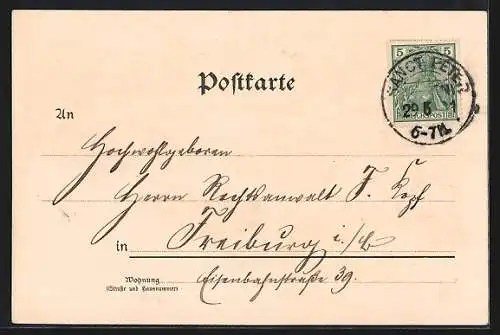 Postkarte
5 5
SANCT PETER
29.5
6-7N.
An
Hochwohlgeboren
Herrn Rechtsanwalt F. Kopf
in Freiburg i./B
Wohnung
(Straße und Hausnummer)
Eisenbahnstraße 39.